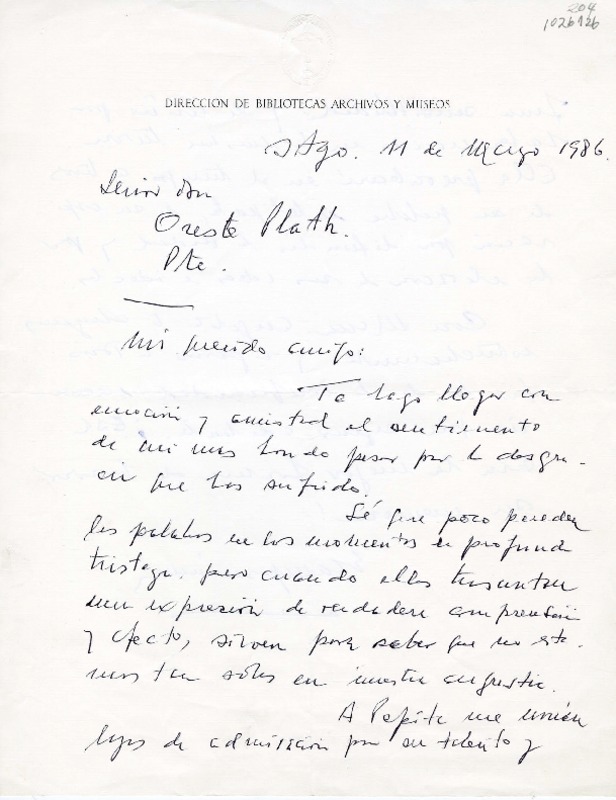 204
1026126
DIRECCION DE BIBLIOTECAS ARCHIVOS Y MUSEOS
Stgo. 11 de Marzo 1986.
Señor don
Oreste Plath.
Pte.
Mi querido amigo:
Te hago llegar con
emoción y amistad el sentimiento
de mi mas hondo pesar por la desgra-
cia que has sufrido.
Sé que poco pueden
las palabras en los momentos de profunda
tristeza, pero cuando ellas trasuntan
una expresión de verdadera comprensión
y afecto, sirven para saber que no esta-
mos tan sólos en nuestra angustia.
A Pepita me unían
lazos de admiración por su talento y